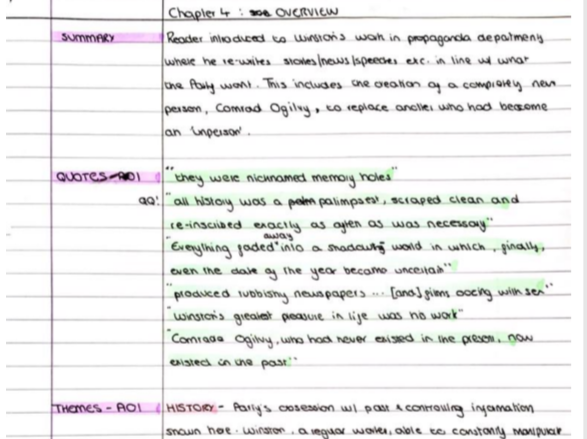 Chapter 4 : OVERVIEW
SUMMARY Reader introduced to Winston's work in propaganda department
where he re-writes stories/news/speeches etc. in line w/ what
the Party want. This includes the creation of a completely new
person, Comrad Ogilvy, to replace another who had become
an 'unperson'.
QUOTES - AO1 "they were nicknamed memory holes"
"all history was a palimpsest, scraped clean and
re-inscribed exactly as often as was necessary"
"Everything faded away into a shadow world in which, finally,
even the date of the year became uncertain"
"produced rubbishy newspapers ... [and] films oozing with sex"
"Winston's greatest pleasure in life was his work"
"Comrade Ogilvy, who had never existed in the present, now
existed in the past"
THEMES - AO1 HISTORY - Party's obsession w/ past & controlling information
shown here. Winston, a regular worker, able to constantly manipulate